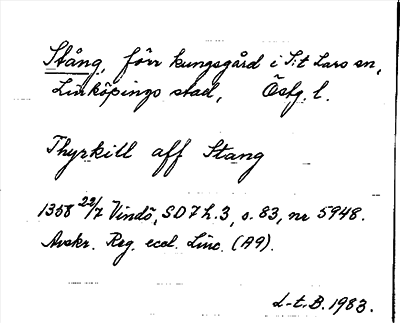 Stång, förr kungsgård i S:t Lars sn,
Linköpings stad, Östg. l.
Thyrkill aff Stang
1358 22/7 Vindö, SD 7 h. 3, s. 83, nr 5948.
Avskr. Reg. eccl. Linc. (A9).
L-t. B. 1983.